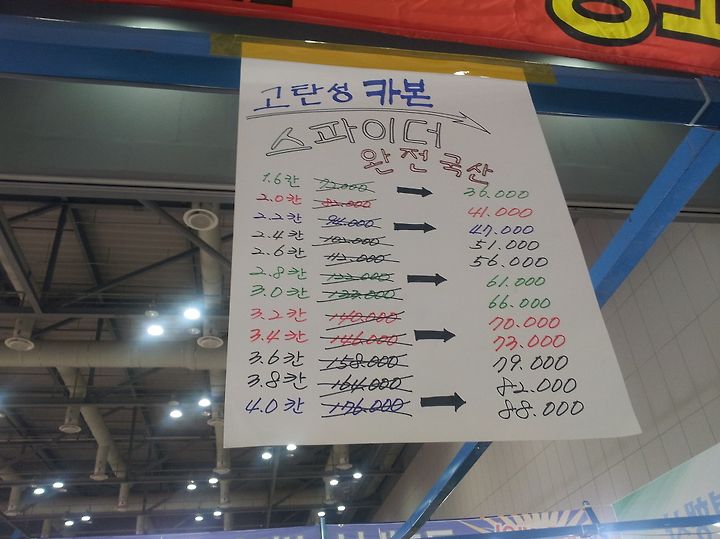 고탄성 카본
스파이더
완전국산
1.6칸 72.000 → 36.000
2.0칸 82.000 41.000
2.2칸 94.000 → 47.000
2.4칸 102.000 51.000
2.6칸 112.000 56.000
2.8칸 122.000 → 61.000
3.0칸 133.000 66.000
3.2칸 140.000 70.000
3.4칸 146.000 → 73.000
3.6칸 158.000 79.000
3.8칸 164.000 82.000
4.0칸 176.000 → 88.000